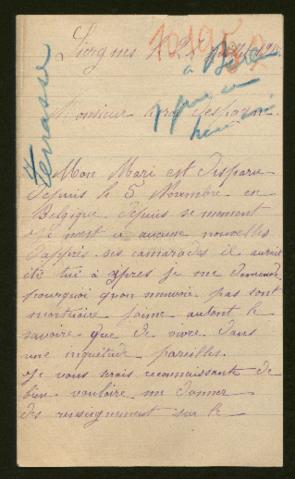 Monsieur le roi despagne.
Mon Mari est disparu
depuis le 5 Novembre en
Belgique depuis se moment
je neut a aucune nouvelles
dapprès ses camarades il aurait
été tué a ypres je me demande
pourquoi quon menvoie pas sont
mortuaire jaime autant le
savoire que de vivre dans
une inquiétude pareilles.
Je vous serais reconnaissante de
bien vouloire me donner
des renseignement sur le
Terrasse